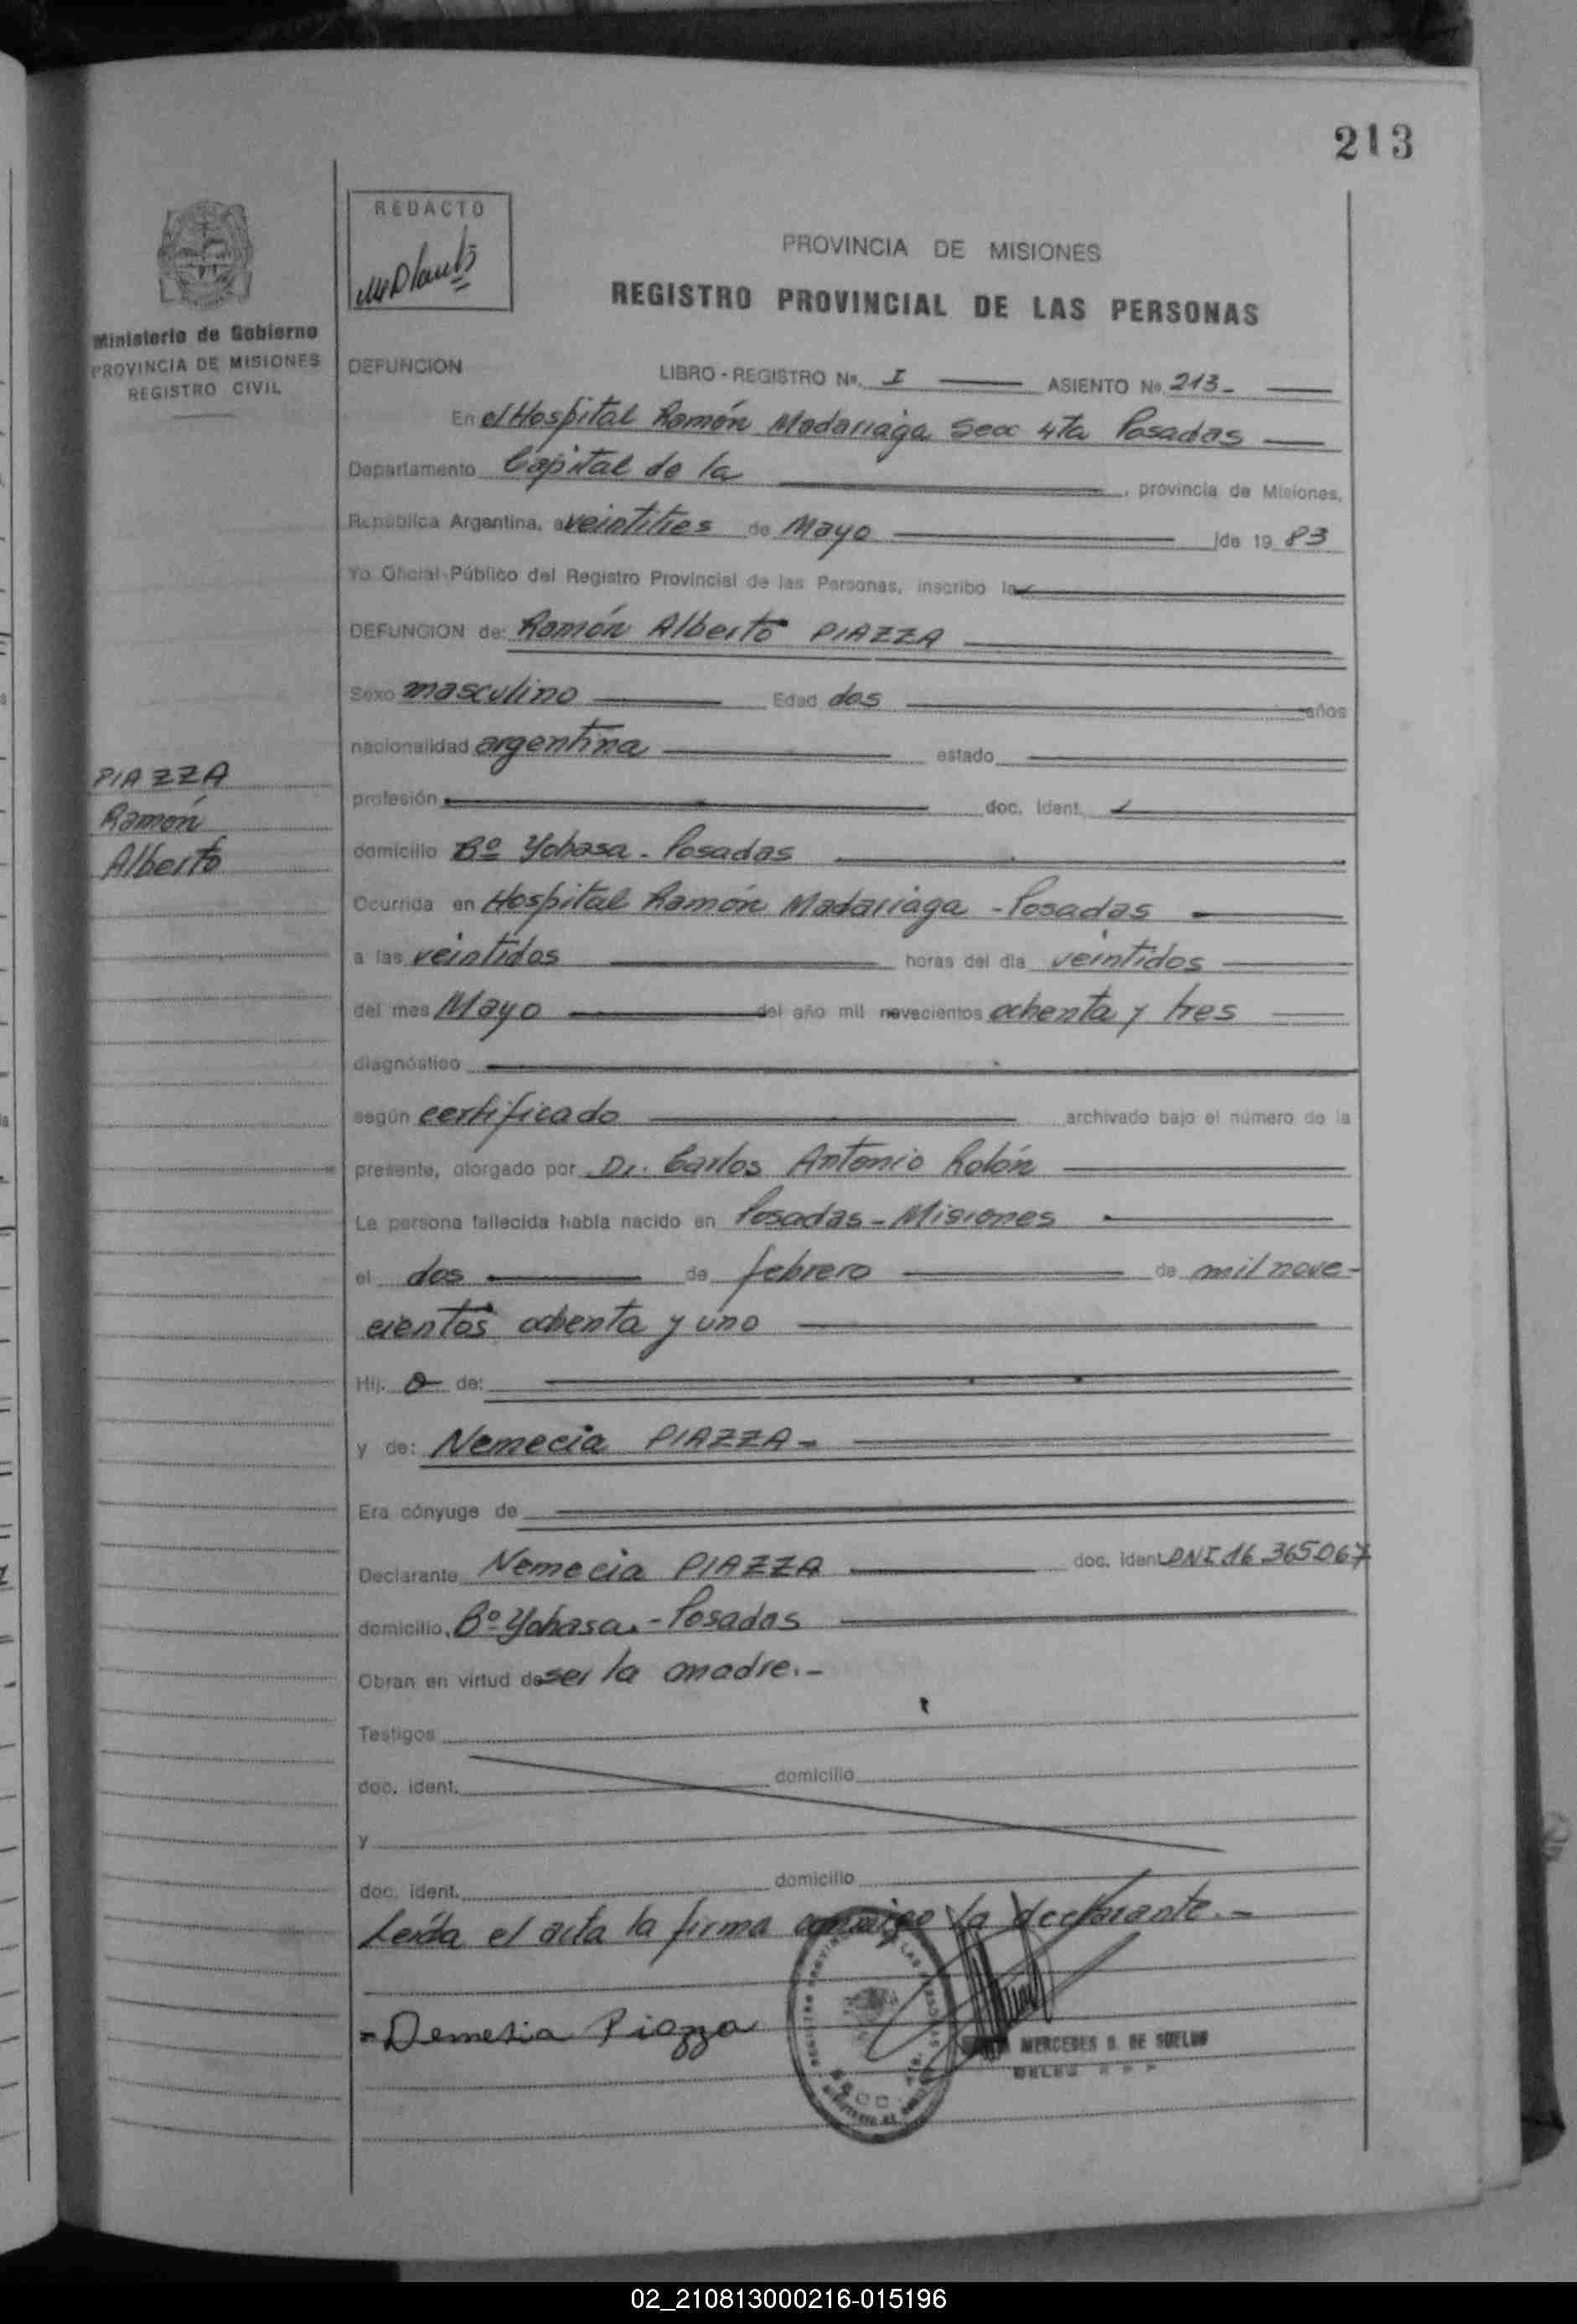 213
REDACTO
PROVINCIA DE MISIONES
REGISTRO PROVINCIAL DE LAS PERSONAS
Ministerio de Gobierno
PROVINCIA DE MISIONES
REGISTRO CIVIL
DEFUNCION LIBRO - REGISTRO Nº. I ASIENTO Nº 213-
En el Hospital Ramón Madariaga Secc 4ta Posadas
Departamento Capital de la , provincia de Misiones,
República Argentina, a veintitres de Mayo de 19 83
Yo Oficial Público del Registro Provincial de las Personas, inscribo la
DEFUNCION de: Ramón Alberto PIAZZA
Sexo masculino Edad dos años
nacionalidad argentina estado
profesión doc. ident.
PIAZZA
Ramón
Alberto
domicilio Bº Yohasa - Posadas
Ocurrida en Hospital Ramón Madariaga - Posadas
a las veintidos horas del día veintidos
del mes Mayo del año mil novecientos ochenta y tres
diagnóstico
según certificado archivado bajo el número de la
presente, otorgado por Dr. Carlos Antonio Rolón
La persona fallecida había nacido en Posadas - Misiones
el dos de febrero de mil nove-
cientos ochenta y uno
Hij. o de:
y de: Nemecia PIAZZA -
Era cónyuge de
Declarante Nemecia PIAZZA doc. ident DNI 16.365067
domicilio, Bº Yohasa. - Posadas
Obran en virtud de ser la madre. -
Testigos
doc. ident. domicilio
y
doc. ident. domicilio
Leída el acta la firma conmigo la declarante. -
= Demesia Piazza
MERCEDES B. DE
02_210813000216-015196